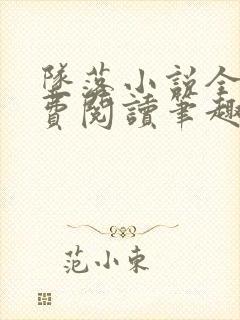 墜落小說全
費閱讀筆趣
范小東